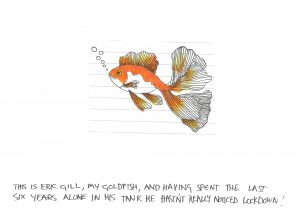 THIS IS ERIC GILL, MY GOLDFISH, AND HAVING SPENT THE LAST
SIX YEARS ALONE IN HIS TANK HE HASN'T REALLY NOTICED LOCKDOWN!